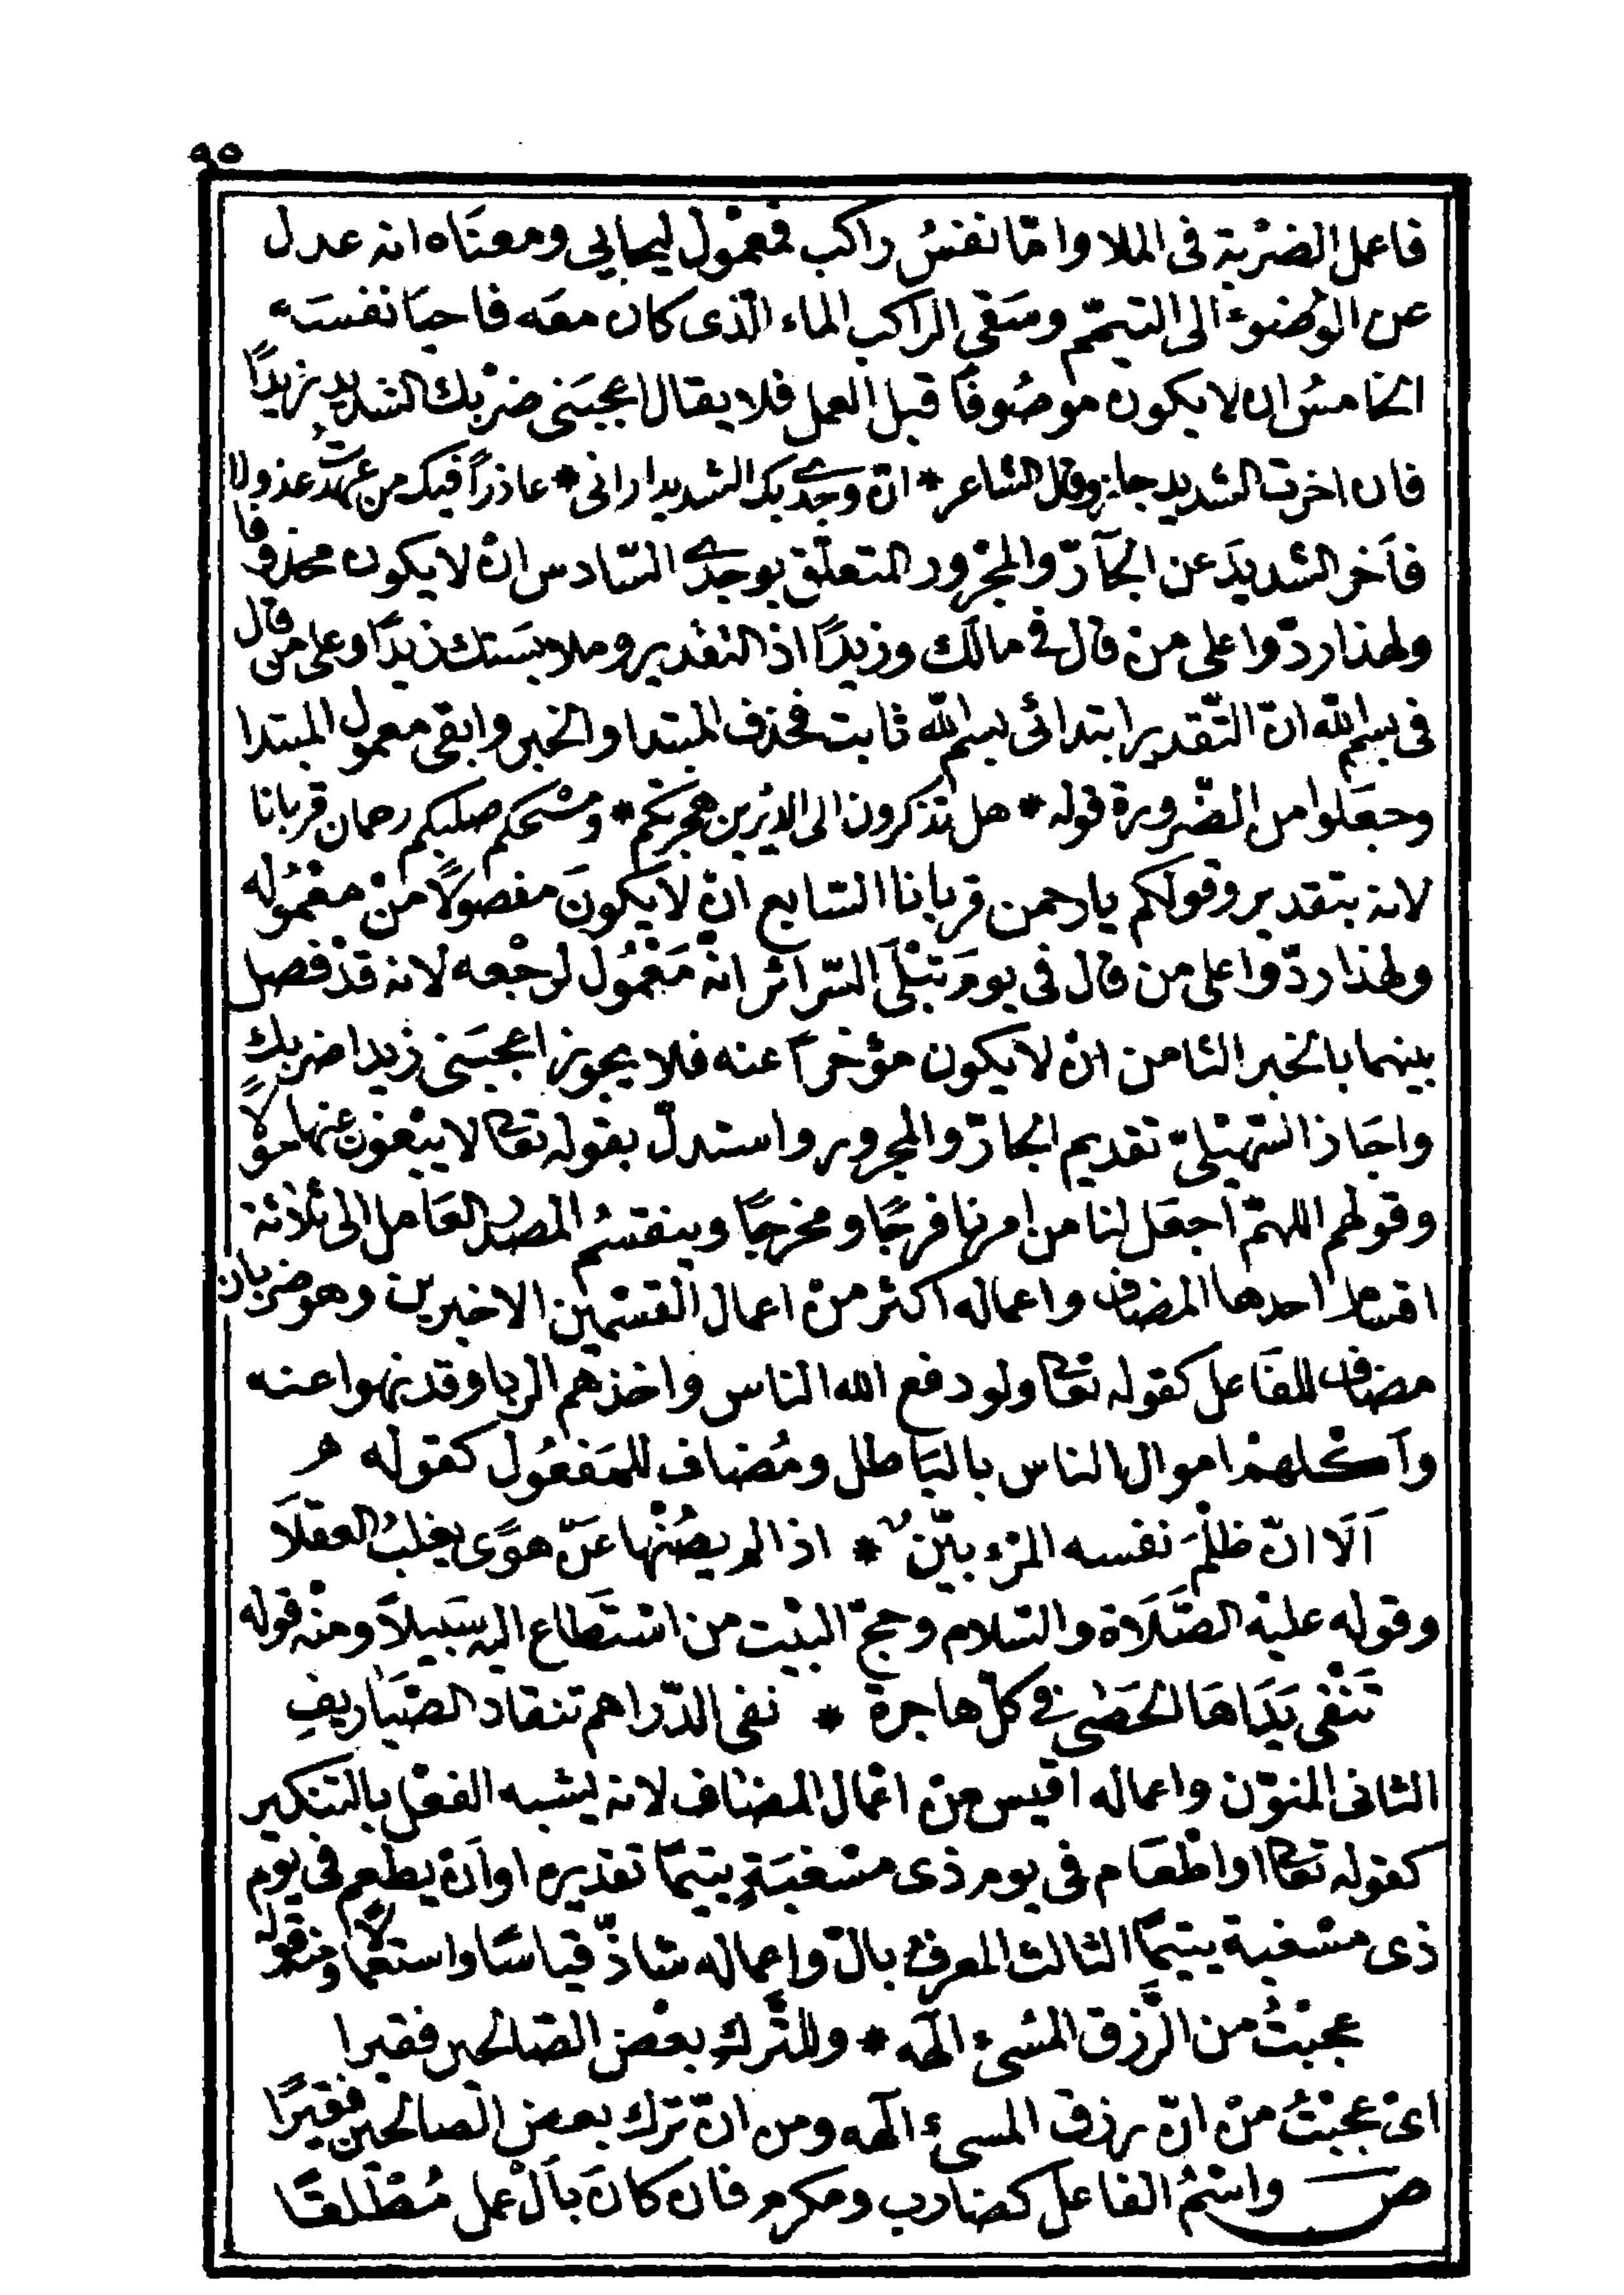 ٩٥
فاعمل الضرْبة فى الملا وامّا نفسُ راكب فمعمُول ليحايي ومعنَاه انه عدل
عن الوُضوء الى التيمّم وسَقى الراكب الماء الّذى كان معَه فاحيَا نفسَه
الخامسُ ان لا يكون موصُوفًا قبل العمل فلا يقال اعجبَنى ضرْبك الشديد زيدًا
فان اخرت الشديد جاز وقال الشاعر * انّ وجدى بك الشديد ارانى * عاذرًا فيك من عهدتُ عذولا
فأخر الشديدَ عن الجارّ والمجرْور المتعلّق بوجدى السّادس انْ لا يكون محذوفا
ولهذا ردّوا على منْ قال فى مالك وزيدًا اذ التقدير وملابسَتك زيدًا وعلى من قال
فى بسم الله انّ التّقدير ابتدائى بسم الله ثابت فحذف المبتدا والخبر وابقى معمول المبتدا
وجعَلوا من الضّرورة قوله * هل تذكرون الى الديْرين هجرتكم * ومسْحكم صلبكم رحمان قربانا
لانه بتقدير وقولكم يا رحمن قربانا السّابع انْ لا يكونَ مفصولًا منْ معْمُوله
ولهذا ردّوا على من قال فى يومَ تبْلَى السّرائر انهْ مَعْمُول لرجْعه لانه قدْ فصل
بينهما بالخبر الثامن انْ لا يكون مؤخرًا عنه فلا يجوز اعجبَنى زيدا ضربك
واجَاز السّهيْلىّ تقديم الجارّ والمجرور واستدلّ بقوله تعالى لا يبْغون عنها حوْلًا
وقولهم اللهمّ اجعَل لنا من امرنا فرجًا ومخرجًا وينقسمُ المصدر العَامل الى ثلاثة
اقسام احدها المضاف واعماله اكثر منْ اعمال القسْمين الاخيرين وهو ضربان
مضاف للفَاعل كقوله تعالى ولو دفع الله الناس واخذهم الربا وقد نهوا عنه
وأكلهمْ اموال الناس بالبَاطل ومُضاف للمَفعُول كقوله
اَلَا انّ ظلْمَ نفسه المرْء بيّنٌ * اذا لم يصُنْها عَنّ هوًى يغلبُ العقلَا
وقوله عليْه الصَّلَاة والسّلام وحجّ البيْت من اسْتَطاع اليه سَبيلًا ومنْه قوله
تَنْفى يَدَاهَا الحَصٰى فى كلّ هاجرة * نفى الدّراهم تنقاد الصّيَاريفِ
الثانى المنوّن واعماله اقيس منْ اعْمال المضَاف لانه يشبه الفعْل بالتنكير
كقوله تعالى او اطْعَام فى يوم ذى مسْغبَةٍ يتيمًا تقديره او اَنْ يطعم فى يوم
ذى مسْغبة يتيمًا الثالث المعرف بال واعماله شاذّ قياسًا واستعمالًا ومنه قوله
عجبْتُ من الرَّزق المسْىء الهه * وللتَّرك بعْض الصّالحين فقيرا
اىْ عجبْتُ منْ انْ رزق المسىء الهه ومن انْ ترك بعض الصالحين فقيرًا
ص واسْمُ الفاعل كضارب ومكرم فان كانَ بأَلْ عمل مُطْلَقًا